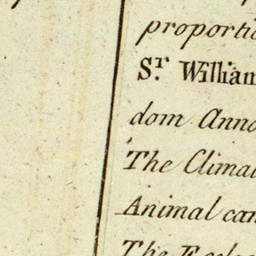 proporti
Sr. William
dom Anno
The Clima
Animal can
The